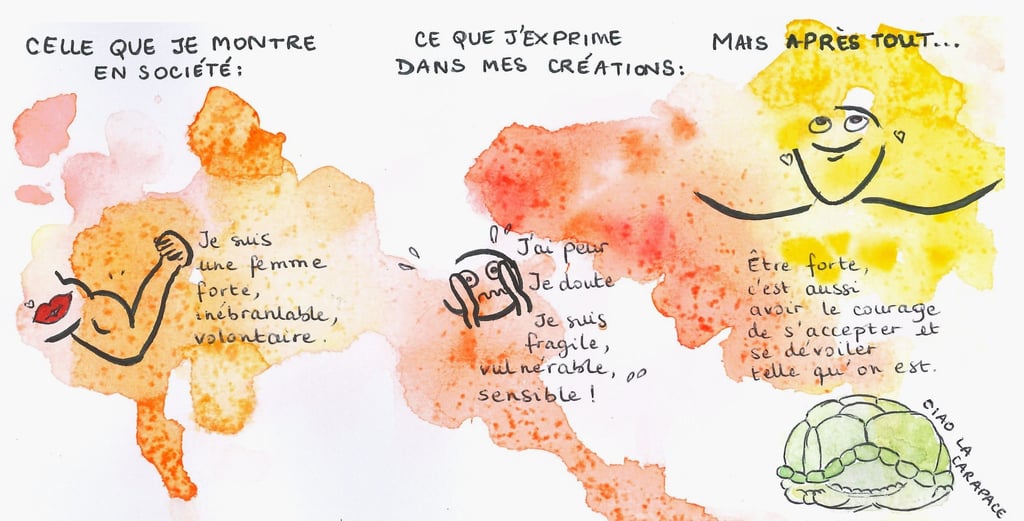 CELLE QUE JE MONTRE
EN SOCIÉTÉ:
Je suis
une femme
forte,
inébranlable,
volontaire.
CE QUE J'EXPRIME
DANS MES CRÉATIONS:
J'ai peur
Je doute
Je suis
fragile,
vulnérable,
sensible !
MAIS APRÈS TOUT...
Être forte,
c'est aussi
avoir le courage
de s'accepter et
se dévoiler
telle qu'on est.
CIAO LA
CARAPACE